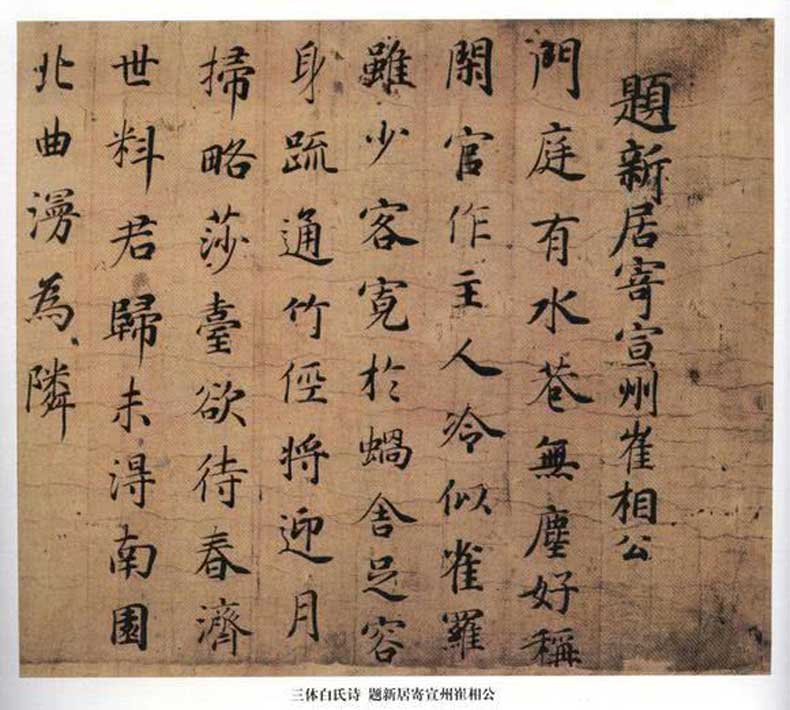 題新居寄宣州崔相公
門庭有水巷無塵好稱
閑官作主人冷似雀羅
雖少客寛於蝸舎足容
身疏通竹俓將迎月
掃略莎臺欲待春濟
世料君歸未淂南園
北曲漫為隣
三体白氏诗 题新居寄宣州崔相公